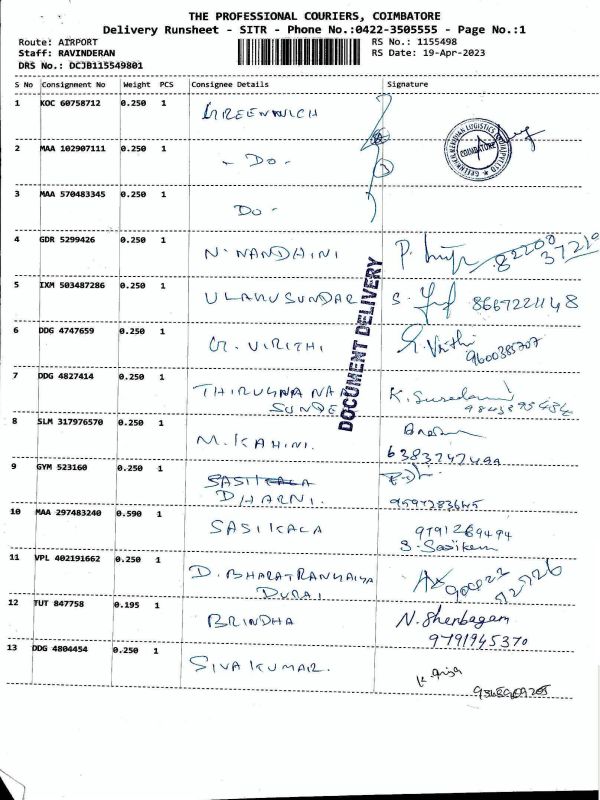 THE PROFESSIONAL COURIERS, COIMBATORE
Delivery Runsheet - SITR - Phone No.:0422-3505555 - Page No.:1
Route: AIRPORT
RS No.: 1155498
Staff: RAVINDERAN
RS Date: 19-Apr-2023
DRS No.: DCJB115549801
S No Consignment No Weight PCS Consignee Details Signature
1 KOC 60758712 0.250 1 GREENWICH
2 MAA 102907111 0.250 1 - DO -
COIMBATORE
3 MAA 570483345 0.250 1 DO -
4 GDR 5299426 0.250 1 N. NANDHINI
5 IXM 503487286 0.250 1 ULAKUSUNDAR S. 8667221148
6 DDG 4747659 0.250 1 G. VIRITHI
9600385707
DOCUMENT DELIVERY
7 DDG 4827414 0.250 1 THIRUGNANA
SUNDE K.
8 SLM 317976570 0.250 1 M. KAHINI.
9 GYM 523160 0.250 1 SASIKALA
DHARNI. 9597283645
10 MAA 297483240 0.590 1 SASIKALA 9791269494
S. Sasikala
11 VPL 402191662 0.250 1 D. BHARATRANKAIYA
DURAI
12 TUT 847758 0.195 1 BRINDHA N. Shenbagam
9791945370
13 DDG 4804454 0.250 1 SIVAKUMAR.